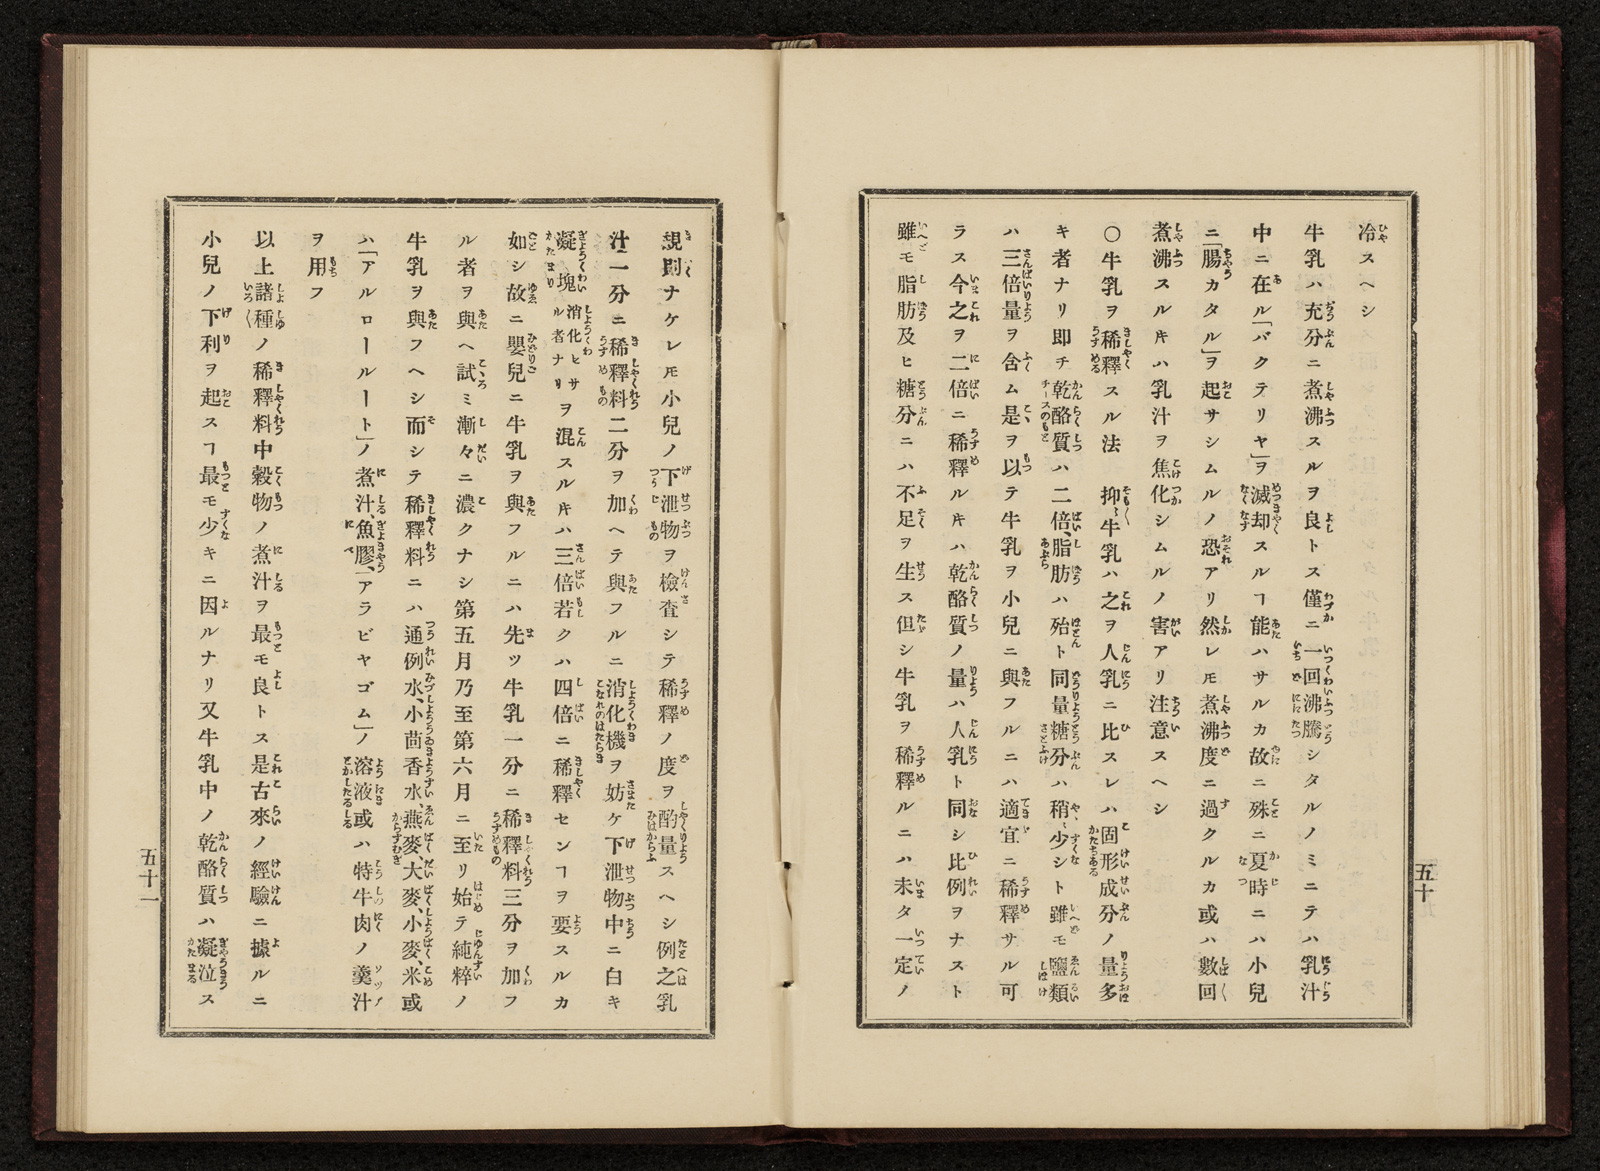 冷スヘシ
牛乳ハ充分ニ煮沸スルヲ良トス僅ニ一回沸騰シタルノミニテハ乳汁
中ニ在ル「バクテリヤ」ヲ滅却スルヿ能ハサルカ故ニ殊ニ夏時ニハ小兒
ニ「腸カタル」ヲ起サシムルノ恐アリ然レ𪜈煮沸度ニ過クルカ或ハ數回
煮沸スル𪜈ハ乳汁ヲ焦化シムルノ害アリ注意スヘシ
〇牛乳ヲ稀釋スル法　抑〻牛乳ハ之ヲ人乳ニ比スレハ固形成分ノ量多
キ者ナリ即チ乾酪質ハ二倍、脂肪ハ殆ト同量糖分ハ稍〻少シト雖モ鹽類
ハ三倍量ヲ含ム是ヲ以テ牛乳ヲ小兒ニ與フルニハ適宜ニ稀釋サル可
ラス今之ヲ二倍ニ稀釋ルキハ乾酪質ノ量ハ人乳ト同シ比例ヲナスト
雖モ脂肪及ヒ糖分ニハ不足ヲ生ス但シ牛乳ヲ稀釋ルニハ未タ一定ノ
五十
規則ナケレ𪜈小兒ノ下泄物ヲ檢査シテ稀釋ノ度ヲ酌量スヘシ例之乳
汁一分ニ稀釋料二分ヲ加ヘテ與フルニ消化機ヲ妨ケ下泄物中ニ白キ
凝塊消化セサル者ナリヲ混スルキハ三倍若クハ四倍ニ稀釋センヿヲ要スルカ
如シ故ニ嬰兒ニ牛乳ヲ與フルニハ先ツ牛乳一分ニ稀釋料三分ヲ加フ
ル者ヲ與ヘ試ミ漸々ニ濃クナシ第五月乃至第六月ニ至リ始テ純粹ノ
牛乳ヲ與フヘシ而シテ稀釋料ニハ通例水、小茴香水、燕麥、大麥、小麥、米或
ハ「アルロールート」ノ煮汁、魚膠、「アラビヤゴム」ノ溶液或ハ特牛肉ノ羹汁
ヲ用フ
以上諸種ノ稀釋料中穀物ノ煮汁ヲ最モ良トス是古來ノ經驗ニ據ルニ
小兒ノ下利ヲ起スヿ最モ少キニ因ルナリ又牛乳中ノ乾酪質ハ凝泣ス
五十一